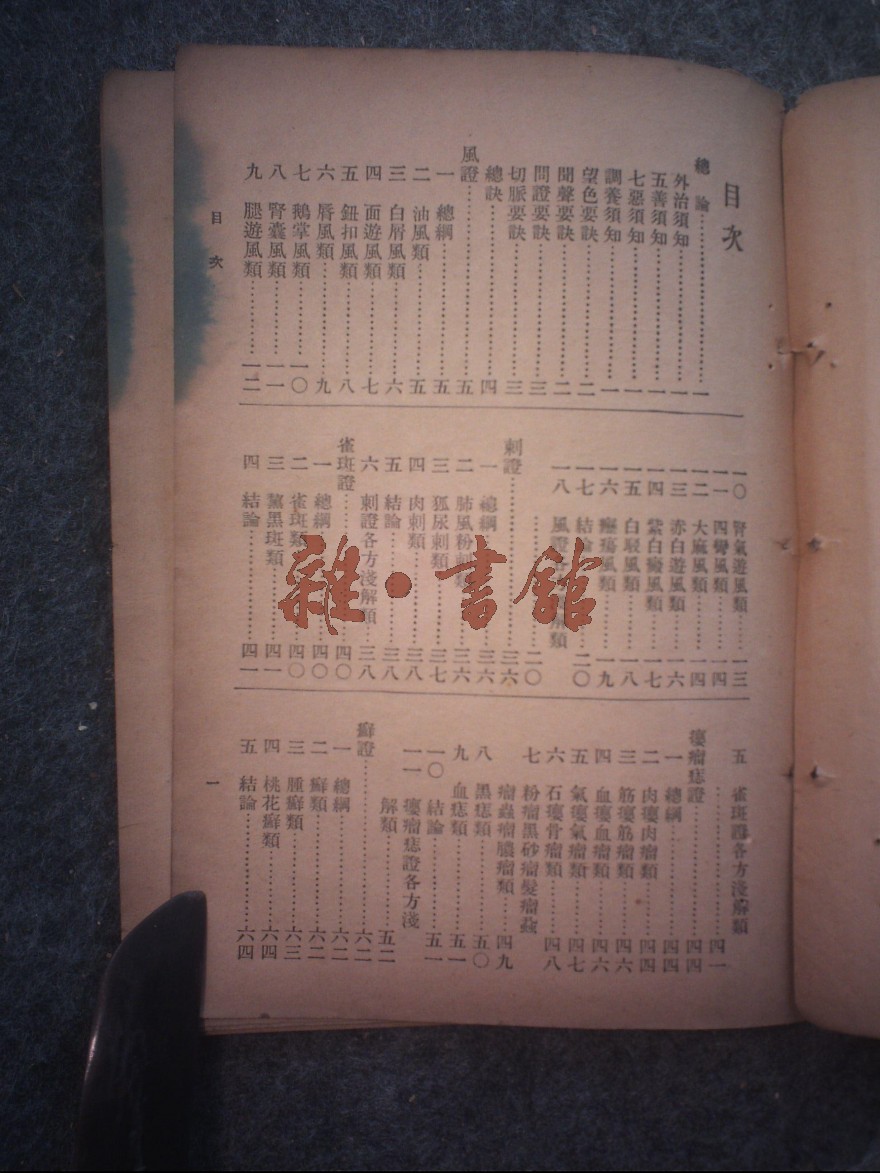 目次
總論…………一
外治須知…………一
五善須知…………一
七惡須知…………一
調養須知…………一
望色要訣…………二
聞聲要訣…………二
問證要訣…………三
切脈要訣…………三
總訣…………四
風證…………五
一 總綱…………五
二 油風類…………五
三 白屑風類…………六
四 面遊風類…………七
五 鈕扣風類…………八
六 唇風類…………九
七 鵝掌風類…………一〇
八 腎囊風類…………一一
九 腿遊風類…………一二
一〇 腎氣遊風類…………一三
一一 四彎風類…………一四
一二 大麻風類…………一四
一三 赤白遊風類…………一六
一四 紫白癜風類…………一七
一五 白駁風類…………一八
一六 癧瘍風類…………一九
一七 結論…………二〇
一八 風證各
類
…………二〇
刺證…………三六
一 總綱…………三六
二 肺風粉刺類…………三六
三 狐尿刺類…………三七
四 肉刺類…………三八
五 結論…………三八
六 刺證各方淺解類…………三八
雀斑證…………四〇
一 總綱…………四〇
二 雀斑類…………四〇
三 黧黑斑類…………四一
四 結論…………四一
五 雀斑證各方淺解類
…………四一
癭瘤痣證…………四四
一 總綱…………四四
二 肉癭肉瘤類…………四四
三 筋癭筋瘤類…………四六
四 血癭血瘤類…………四六
五 氣癭氣瘤類…………四七
六 石癭骨瘤類…………四八
七 粉瘤黑砂瘤髮瘤蝨
瘤蟲瘤膿瘤類…………四九
八 黑痣類…………五〇
九 血痣類…………五一
一〇 結論…………五一
一一 癭瘤痣證各方淺
解類…………五二
癬證…………六二
一 總綱…………六二
二 癬類…………六二
三 腫癬類…………六三
四 桃花癬類…………六四
五 結論…………六四
目次
一
雜·書館